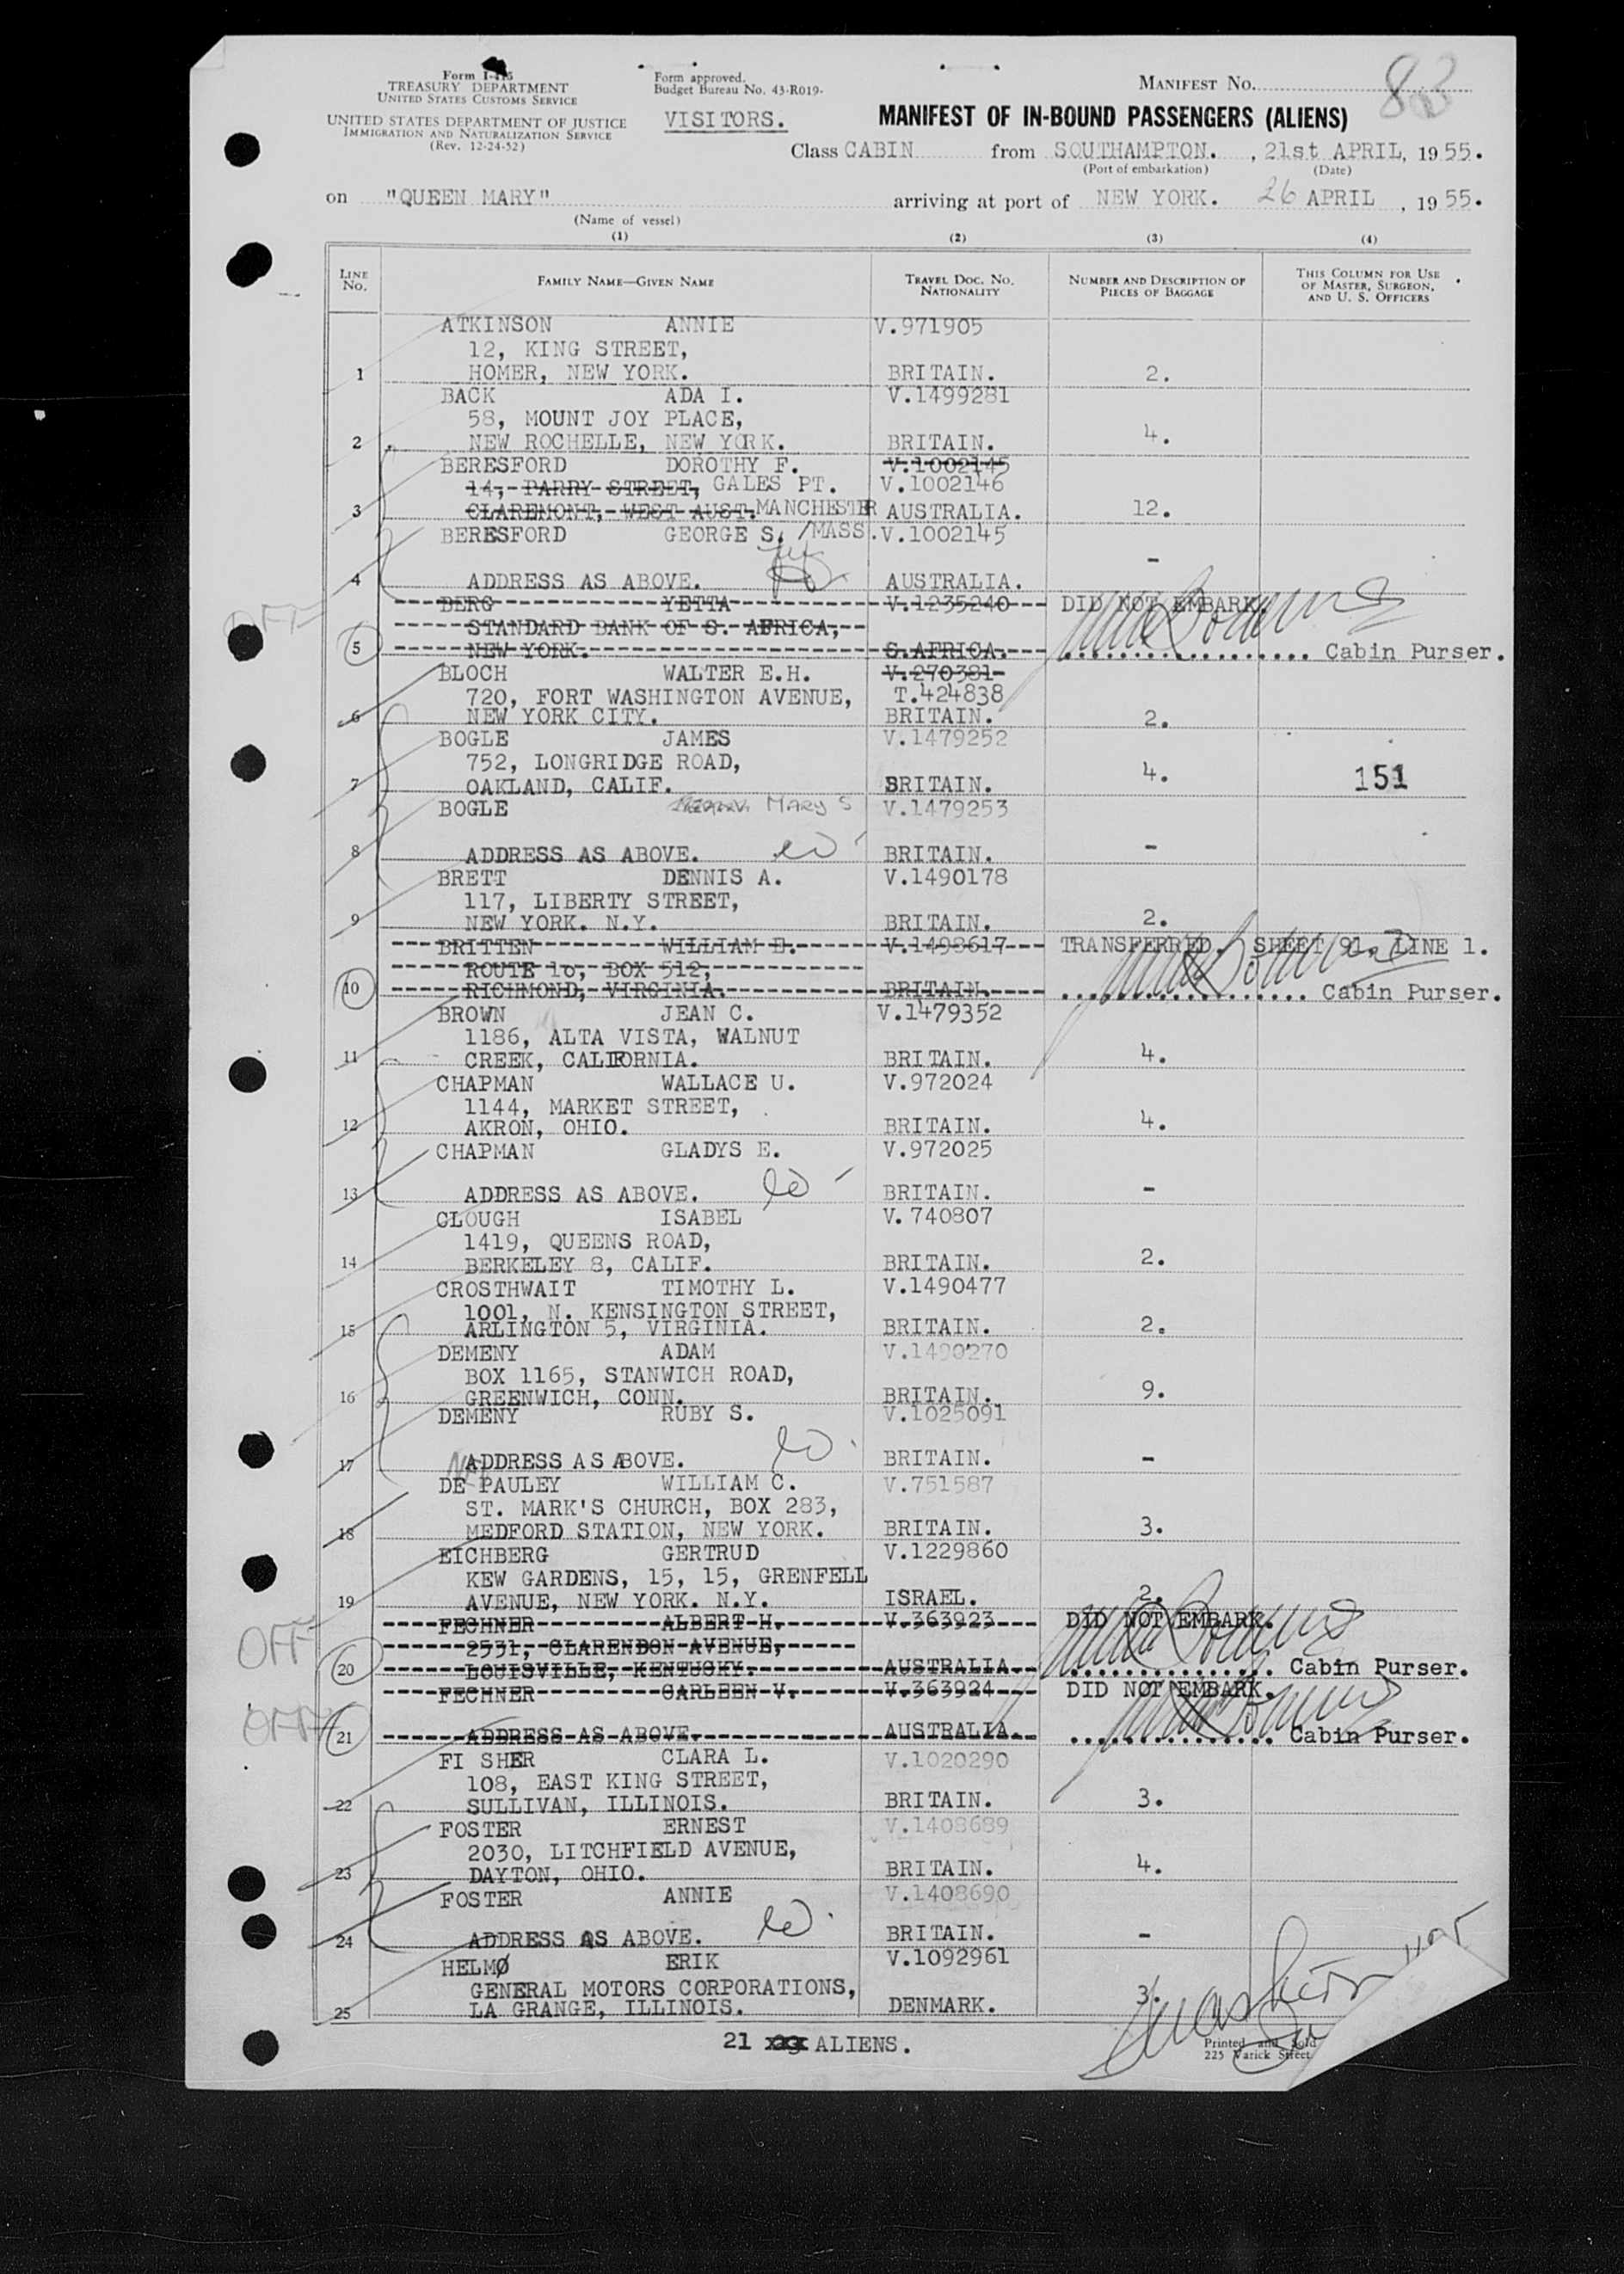 Form I-415
TREASURY DEPARTMENT
UNITED STATES CUSTOMS SERVICE
UNITED STATES DEPARTMENT OF JUSTICE
IMMIGRATION AND NATURALIZATION SERVICE
(Rev. 12-24-52)
Form approved.
Budget Bureau No. 43-R019-
VISITORS.
MANIFEST NO.
83
MANIFEST OF IN-BOUND PASSENGERS (ALIENS)
Class CABIN from SOUTHAMPTON. , 21st APRIL, 1955.
(Port of embarkation) (Date)
on "QUEEN MARY" arriving at port of NEW YORK. 26 APRIL , 1955.
(Name of vessel)
(1) (2) (3) (4)
LINE No. FAMILY NAME—GIVEN NAME TRAVEL DOC. NO. NATIONALITY NUMBER AND DESCRIPTION OF PIECES OF BAGGAGE THIS COLUMN FOR USE OF MASTER, SURGEON, AND U. S. OFFICERS
ATKINSON ANNIE V.971905
12, KING STREET,
1 HOMER, NEW YORK. BRITAIN. 2.
BACK ADA I. V.1499281
58, MOUNT JOY PLACE,
2 NEW ROCHELLE, NEW YORK. BRITAIN. 4.
BERESFORD DOROTHY F. V.1002145
14, PARRY STREET, GALES PT. V.1002146
3 CLAREMONT, WEST AUST. MANCHESTER AUSTRALIA. 12.
BERESFORD GEORGE S. /MASS. V.1002145
4 ADDRESS AS ABOVE. AUSTRALIA. -
BERG YETTA V.1235240 DID NOT EMBARK.
STANDARD BANK OF S. AFRICA,
5 NEW YORK. S.AFRICA. Cabin Purser.
BLOCH WALTER E.H. V.270381
720, FORT WASHINGTON AVENUE, T.424838
6 NEW YORK CITY. BRITAIN. 2.
BOGLE JAMES V.1479252
752, LONGRIDGE ROAD,
7 OAKLAND, CALIF. BRITAIN. 4. 151
BOGLE MARY S V.1479253
8 ADDRESS AS ABOVE. BRITAIN. -
BRETT DENNIS A. V.1490178
117, LIBERTY STREET,
9 NEW YORK. N.Y. BRITAIN. 2.
BRITTEN WILLIAM E. V.1498617 TRANSFERRED. SHEET 91. LINE 1.
ROUTE 10, BOX 512,
10 RICHMOND, VIRGINIA. BRITAIN. Cabin Purser.
BROWN JEAN C. V.1479352
1186, ALTA VISTA, WALNUT
11 CREEK, CALIFORNIA. BRITAIN. 4.
CHAPMAN WALLACE U. V.972024
1144, MARKET STREET,
12 AKRON, OHIO. BRITAIN. 4.
CHAPMAN GLADYS E. V.972025
13 ADDRESS AS ABOVE. BRITAIN. -
CLOUGH ISABEL V. 740807
1419, QUEENS ROAD,
14 BERKELEY 8, CALIF. BRITAIN. 2.
CROSTHWAIT TIMOTHY L. V.1490477
1001, N. KENSINGTON STREET,
15 ARLINGTON 5, VIRGINIA. BRITAIN. 2.
DEMENY ADAM V.1490270
BOX 1165, STANWICH ROAD,
16 GREENWICH, CONN. BRITAIN. 9.
DEMENY RUBY S. V.1025091
17 ADDRESS AS ABOVE. BRITAIN. -
DE PAULEY WILLIAM C. V.751587
ST. MARK'S CHURCH, BOX 283,
18 MEDFORD STATION, NEW YORK. BRITAIN. 3.
EICHBERG GERTRUD V.1229860
KEW GARDENS, 15, 15, GRENFELL
19 AVENUE, NEW YORK. N.Y. ISRAEL. 2.
OFF FECHNER ALBERT H. V.363923 DID NOT EMBARK.
2531, CLARENDON AVENUE,
20 LOUISVILLE, KENTUCKY. AUSTRALIA. Cabin Purser.
FECHNER CARLEEN V. V.363924 DID NOT EMBARK.
OFF 21 ADDRESS AS ABOVE. AUSTRALIA. Cabin Purser.
FISHER CLARA L. V.1020290
108, EAST KING STREET,
22 SULLIVAN, ILLINOIS. BRITAIN. 3.
FOSTER ERNEST V.1408689
2030, LITCHFIELD AVENUE,
23 DAYTON, OHIO. BRITAIN. 4.
FOSTER ANNIE V.1408690
24 ADDRESS AS ABOVE. BRITAIN. -
HELMØ ERIK V.1092961
GENERAL MOTORS CORPORATIONS,
25 LA GRANGE, ILLINOIS. DENMARK. 3.
21 ALIENS.
Printed and Sold
225 Varick Street